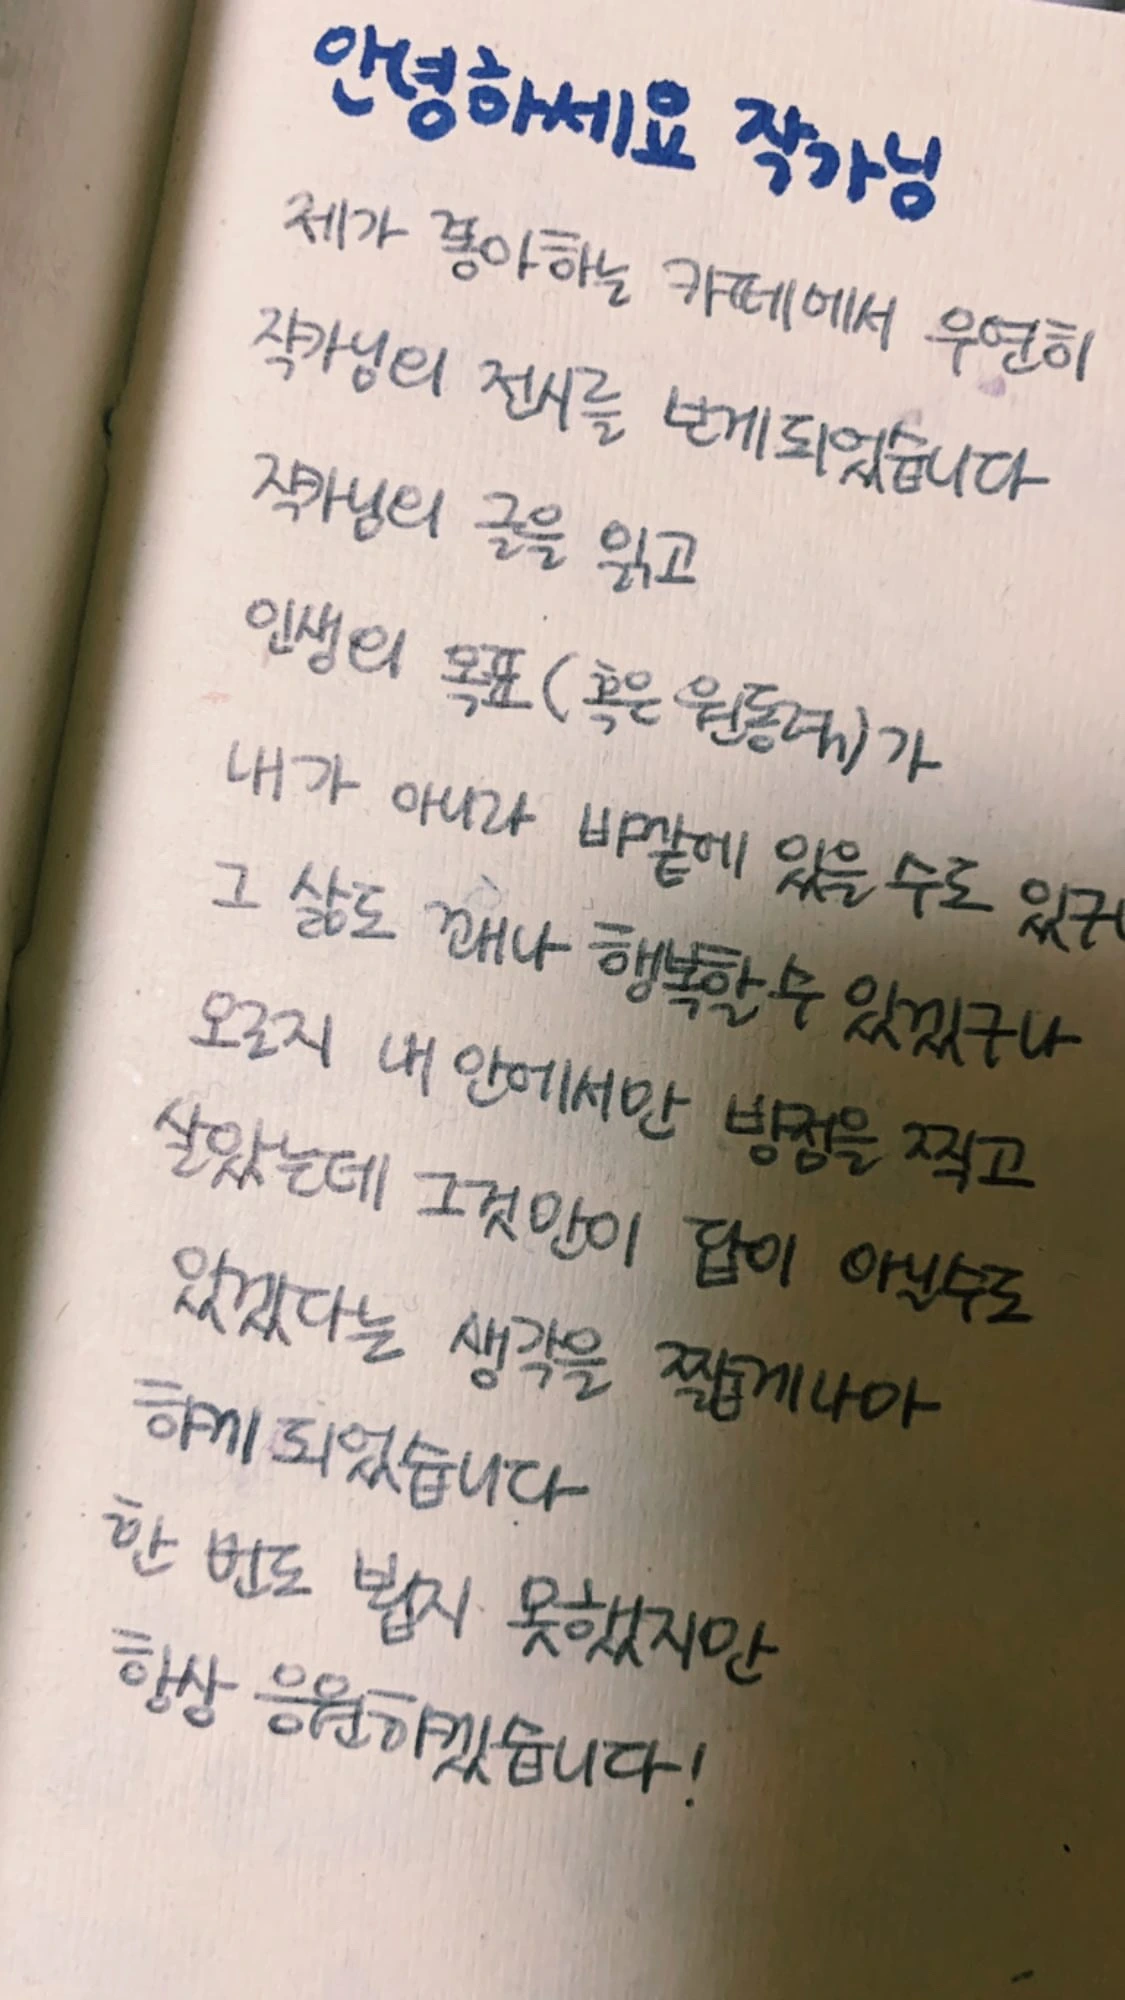 안녕하세요 작가님
제가 좋아하는 카페에서 우연히
작가님의 전시를 보게되었습니다
작가님의 글을 읽고
인생의 목표(혹은 원동력)가
내가 아니라 바깥에 있을 수도 있구나
그 삶도 꽤나 행복할 수 있겠구나
오로지 내 안에서만 방점을 찍고
살았는데 그것만이 답이 아닐수도
있겠다는 생각을 짧게나마
하게 되었습니다
한 번도 뵙지 못했지만
항상 응원하겠습니다!